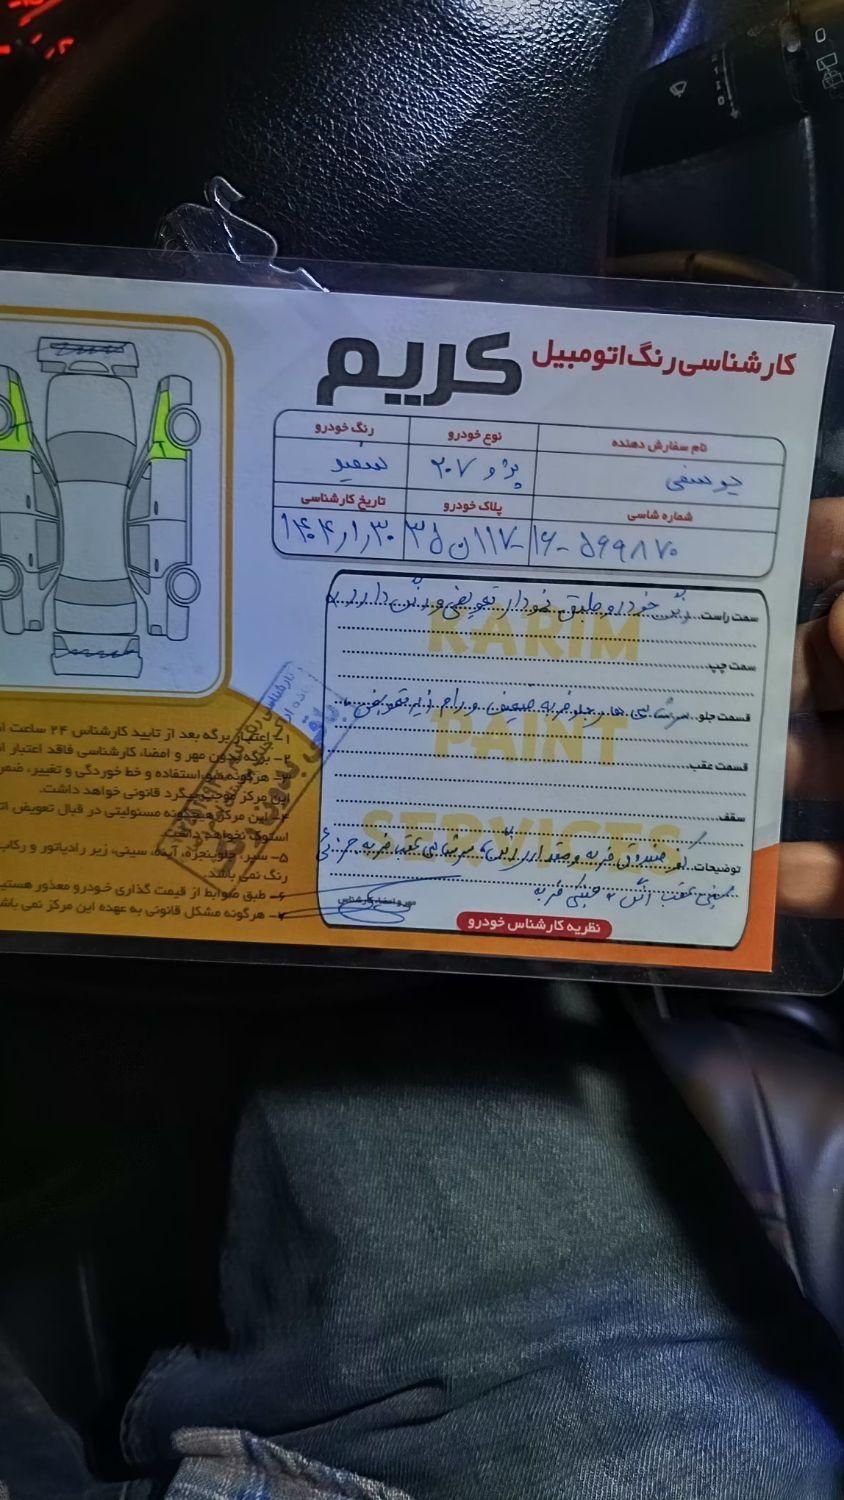 کارشناسی رنگ اتومبیل کریم
نام سفارش دهنده
نوع خودرو
رنگ خودرو
یوسفی
پژو ۲۰۷
سفید
شماره شاسی
پلاک خودرو
تاریخ کارشناسی
۵۶۹۹۸۷۰
KARIM
PAINT
SERVICES
سمت راست: رنگ خودرو طبق نمودار تعویضی و رنگ دارد
سمت چپ:
قسمت جلو: سرشاسی ها و جلو ضربه
قسمت عقب:
سقف:
توضیحات: کف صندوق ضربه سرشاسی عقب ضربه جزئی
سینی عقب
مهر و امضاء کارشناس
نظریه کارشناس خودرو
۱- اعتبار برگه بعد از تایید کارشناس ۲۴ ساعت
۲- برگه بدون مهر و امضاء، کارشناسی فاقد اعتبار
۳- هرگونه سوء استفاده و خط خوردگی و تغییر، ضمن
این مرکز موجب پیگرد قانونی خواهد داشت.
۴- این مرکز هیچگونه مسئولیتی در قبال تعویض
استوک نخواهد داشت.
۵- سپر، جلوپنجره، آینه، سینی، زیر رادیاتور و رکاب
رنگ نمی باشد.
۶- طبق ضوابط از قیمت گذاری خودرو معذور هستیم
۷- هرگونه مشکل قانونی به عهده این مرکز نمی باشد